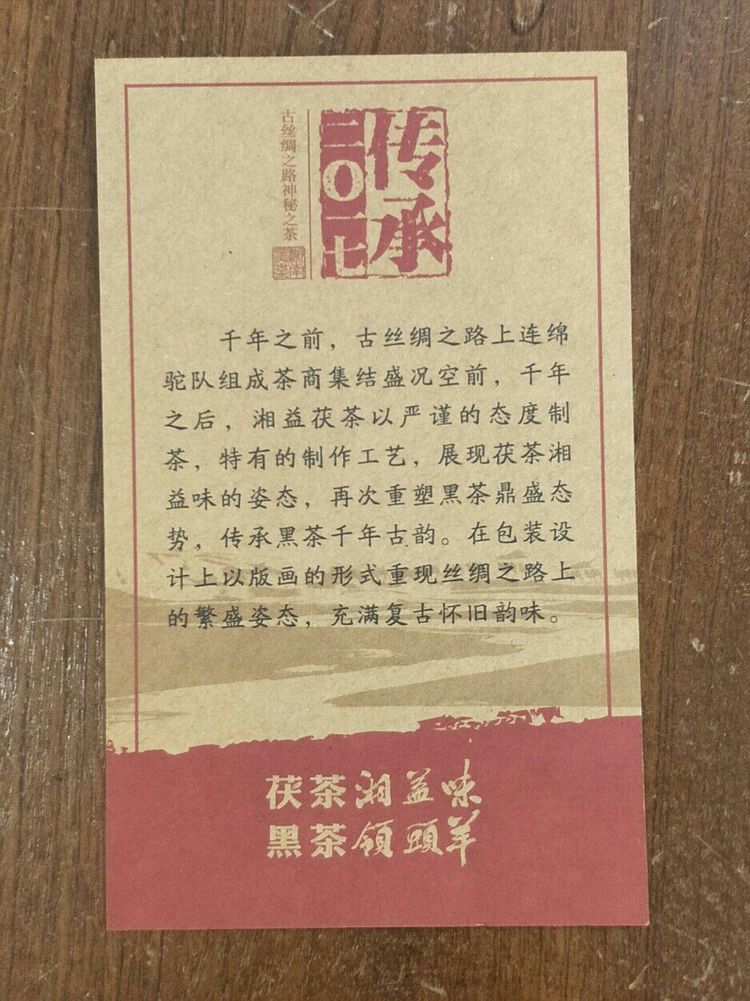 传承
二〇一七
古丝绸之路神秘之茶
千年之前，古丝绸之路上连绵
驼队组成茶商集结盛况空前，千年
之后，湘益茯茶以严谨的态度制
茶，特有的制作工艺，展现茯茶湘
益味的姿态，再次重塑黑茶鼎盛态
势，传承黑茶千年古韵。在包装设
计上以版画的形式重现丝绸之路上
的繁盛姿态，充满复古怀旧韵味。
茯茶湘益味
黑茶领頭羊